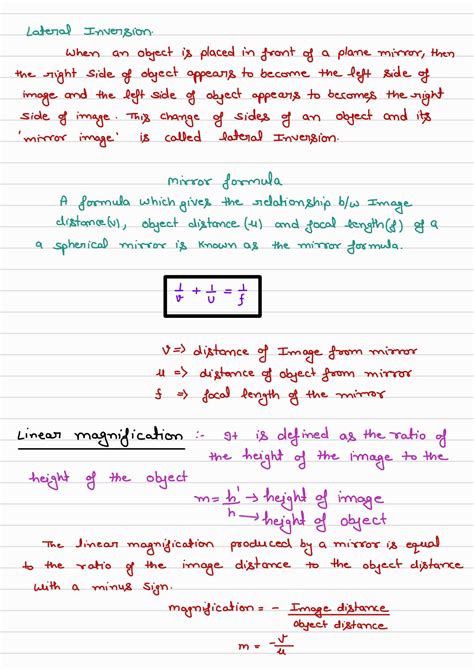 Lateral Inversion.
When an object is placed in front of a plane mirror, then
the right side of object appears to become the left side of
image and the left side of object appears to becomes the right
side of image. This change of sides of an object and its
'mirror image' is called lateral Inversion.
mirror formula
A formula which gives the relationship b/w Image
distance(v), object distance (u) and focal length(f) of a
a spherical mirror is known as the mirror formula.
1/v + 1/u = 1/f
v => distance of Image from mirror
u => distance of object from mirror
f => focal length of the mirror
Linear magnification :- It is defined as the ratio of
the height of the image to the
height of the object
m = h'/h → height of image
→ height of object
The linear magnification produced by a mirror is equal
to the ratio of the image distance to the object distance
with a minus sign.
magnification = - Image distance / object distance
m = -v/u